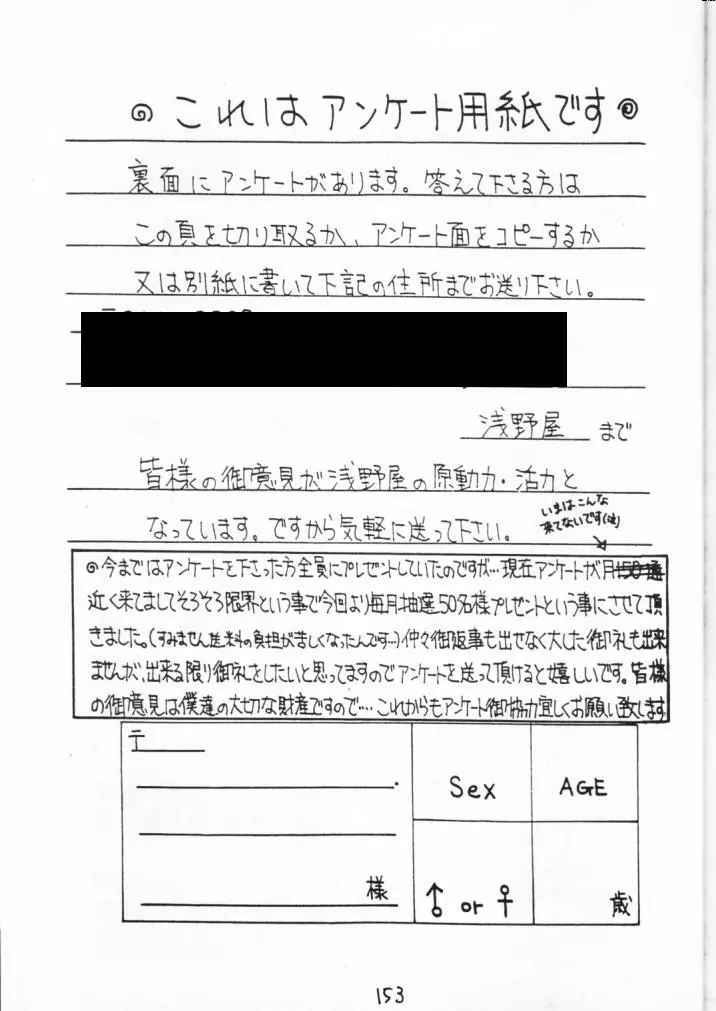 これはアンケート用紙です
裏面にアンケートがあります。答えて下さる方は
この頁を切り取るか、アンケート面をコピーするか
又は別紙に書いて下記の住所までお送り下さい。
浅野屋 まで
皆様の御意見が浅野屋の原動力・活力と
いまはこんな
来てないです(泣)
なっています。ですから気軽に送って下さい。
◎今まではアンケートを下さった方全員にプレゼントしていたのですが…現在アンケートが月150通
近く来てましてそろそろ限界という事で今回より毎月抽選50名様プレゼントという事にさせて頂
きました。(すみません送料の負担が苦しくなったんです…)仲々御返事も出せなく大した御礼も出来
ませんが、出来る限り御礼をしたいと思ってますのでアンケートを送って頂けると嬉しいです。皆様
の御意見は僕達の大切な財産ですので…これからもアンケート御協力宜しくお願い致します
〒
様
Sex
AGE
♂ or ♀
歳
153